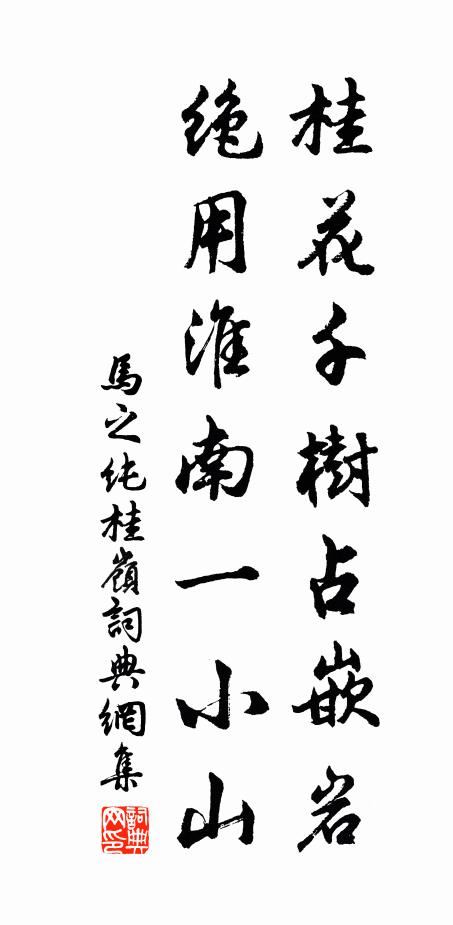 桂花千樹占嵌岩
绝用淮南一小山
馬之纯桂嶺詞典網集
詞典网印